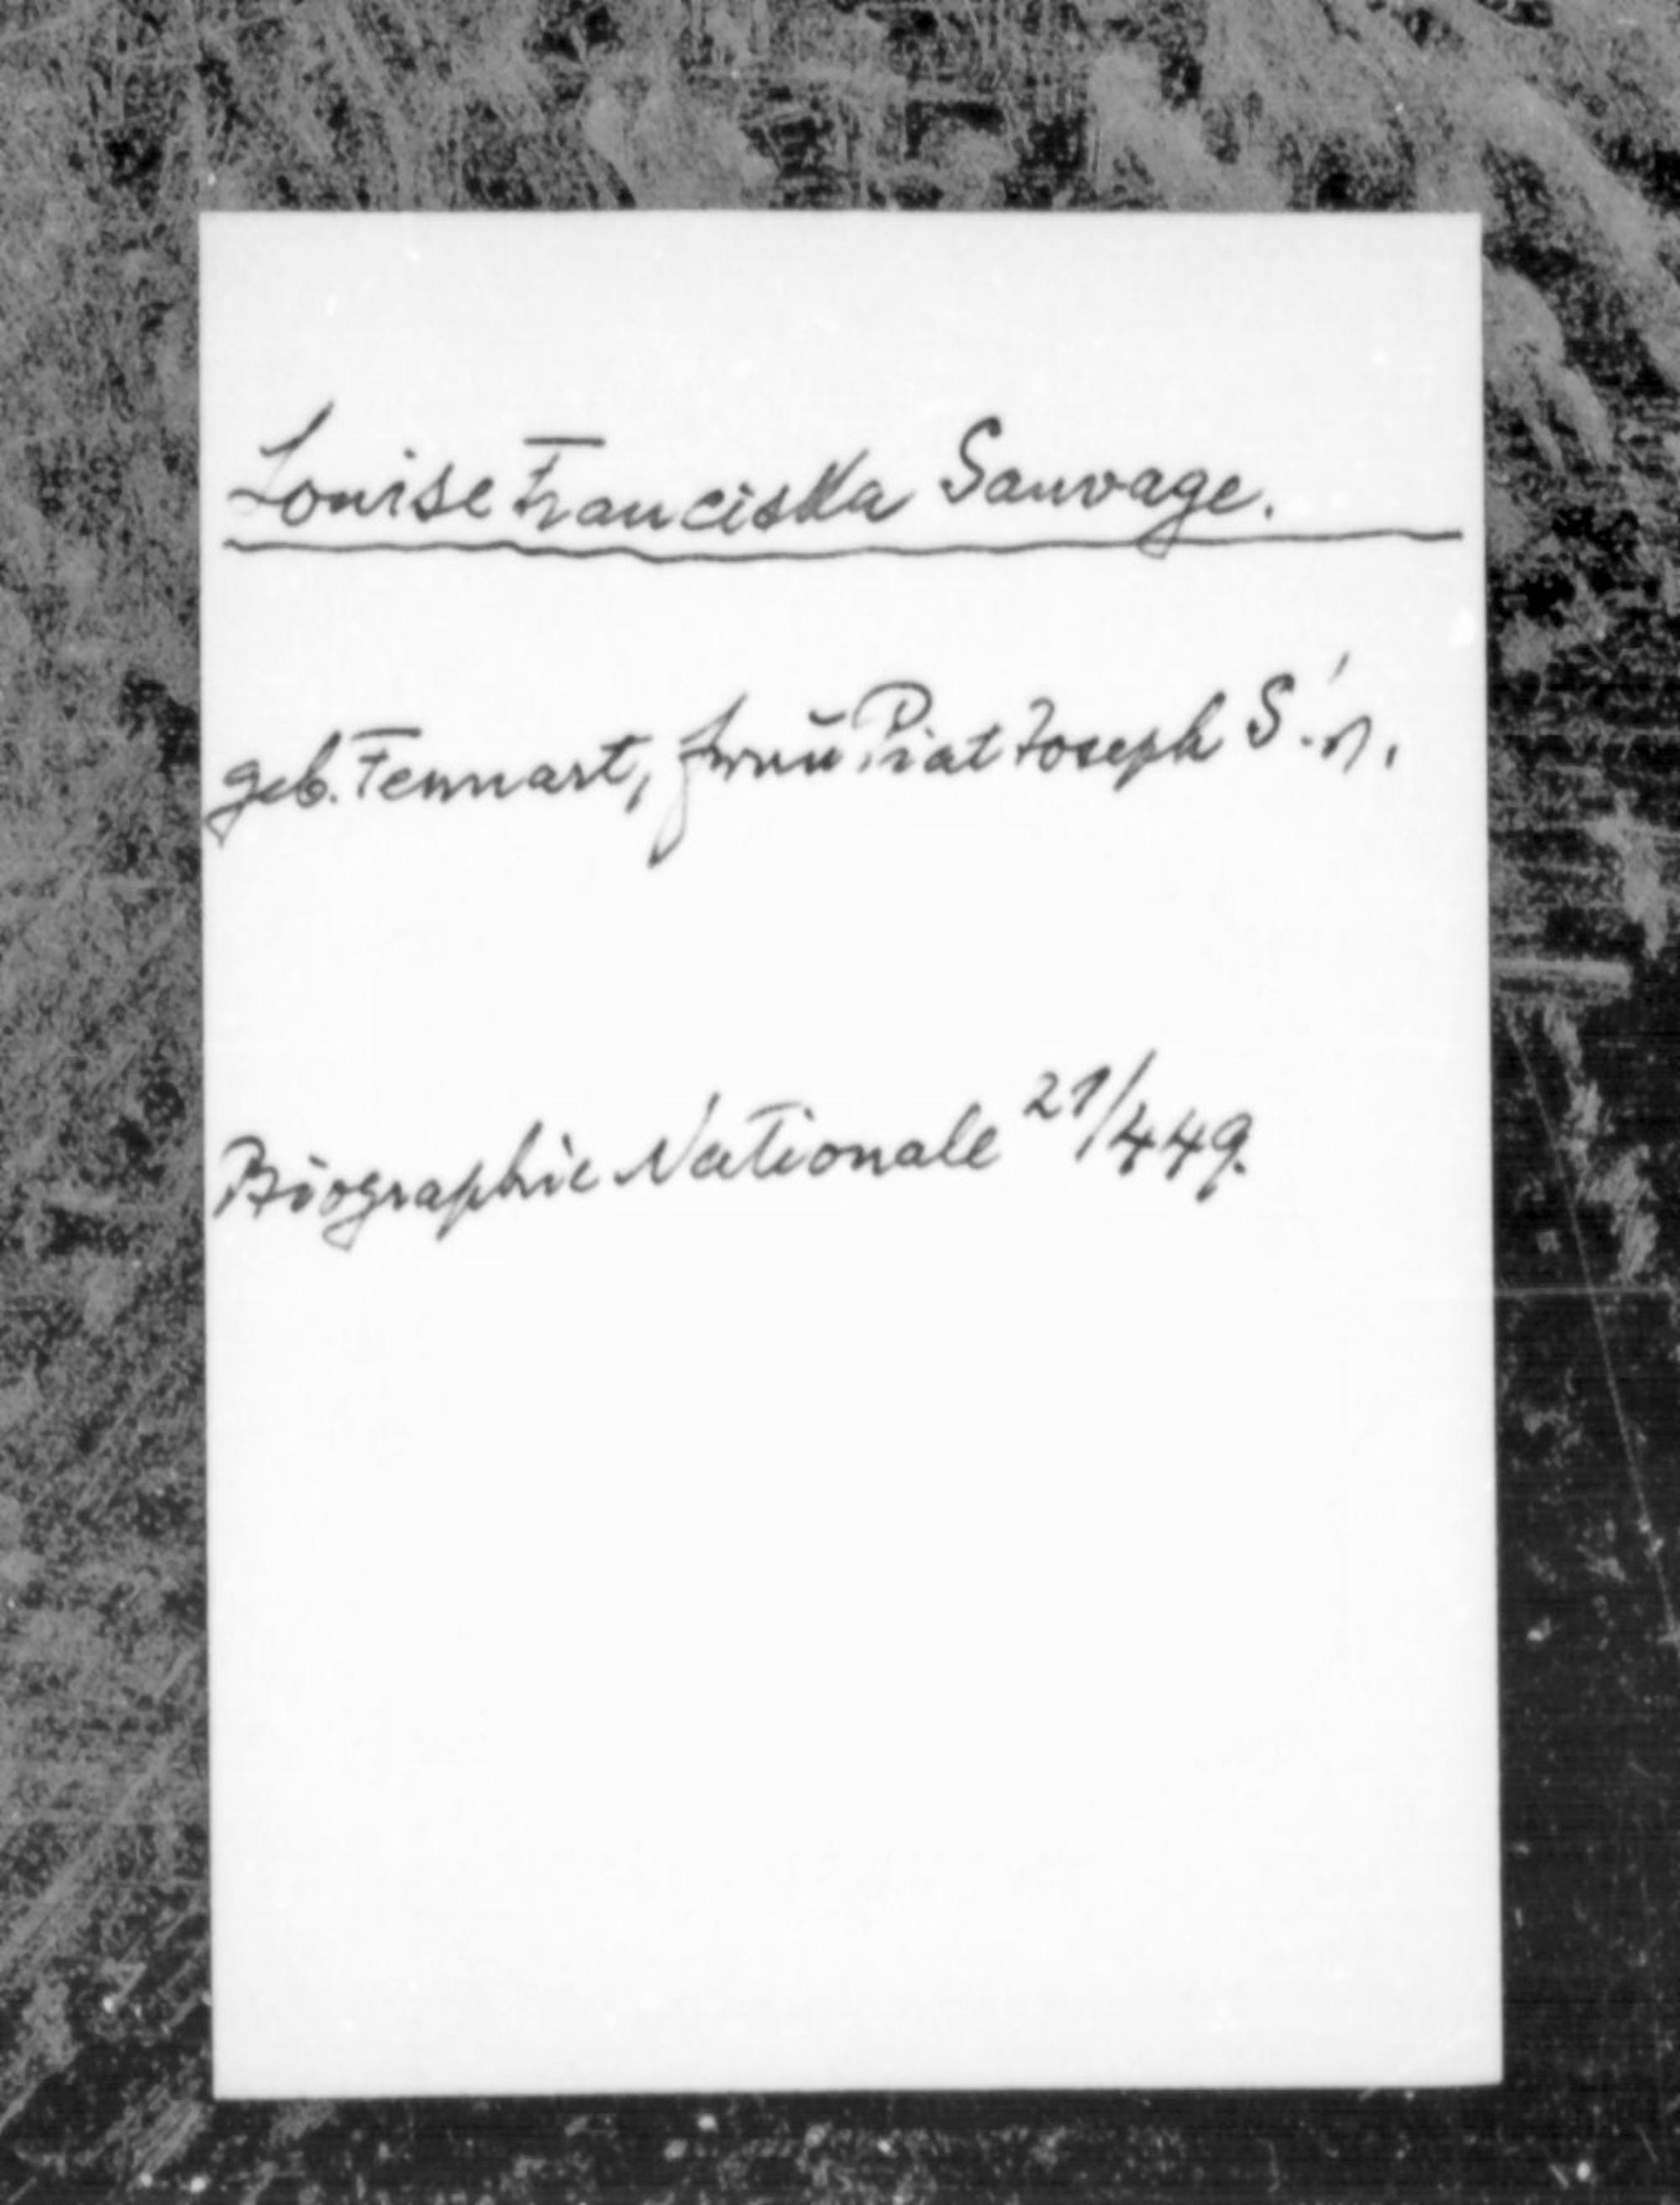 Louise Franciska Sauvage.
geb. Fennart, frau Piat Joseph S.'s.
Biographie Nationale 21/449.